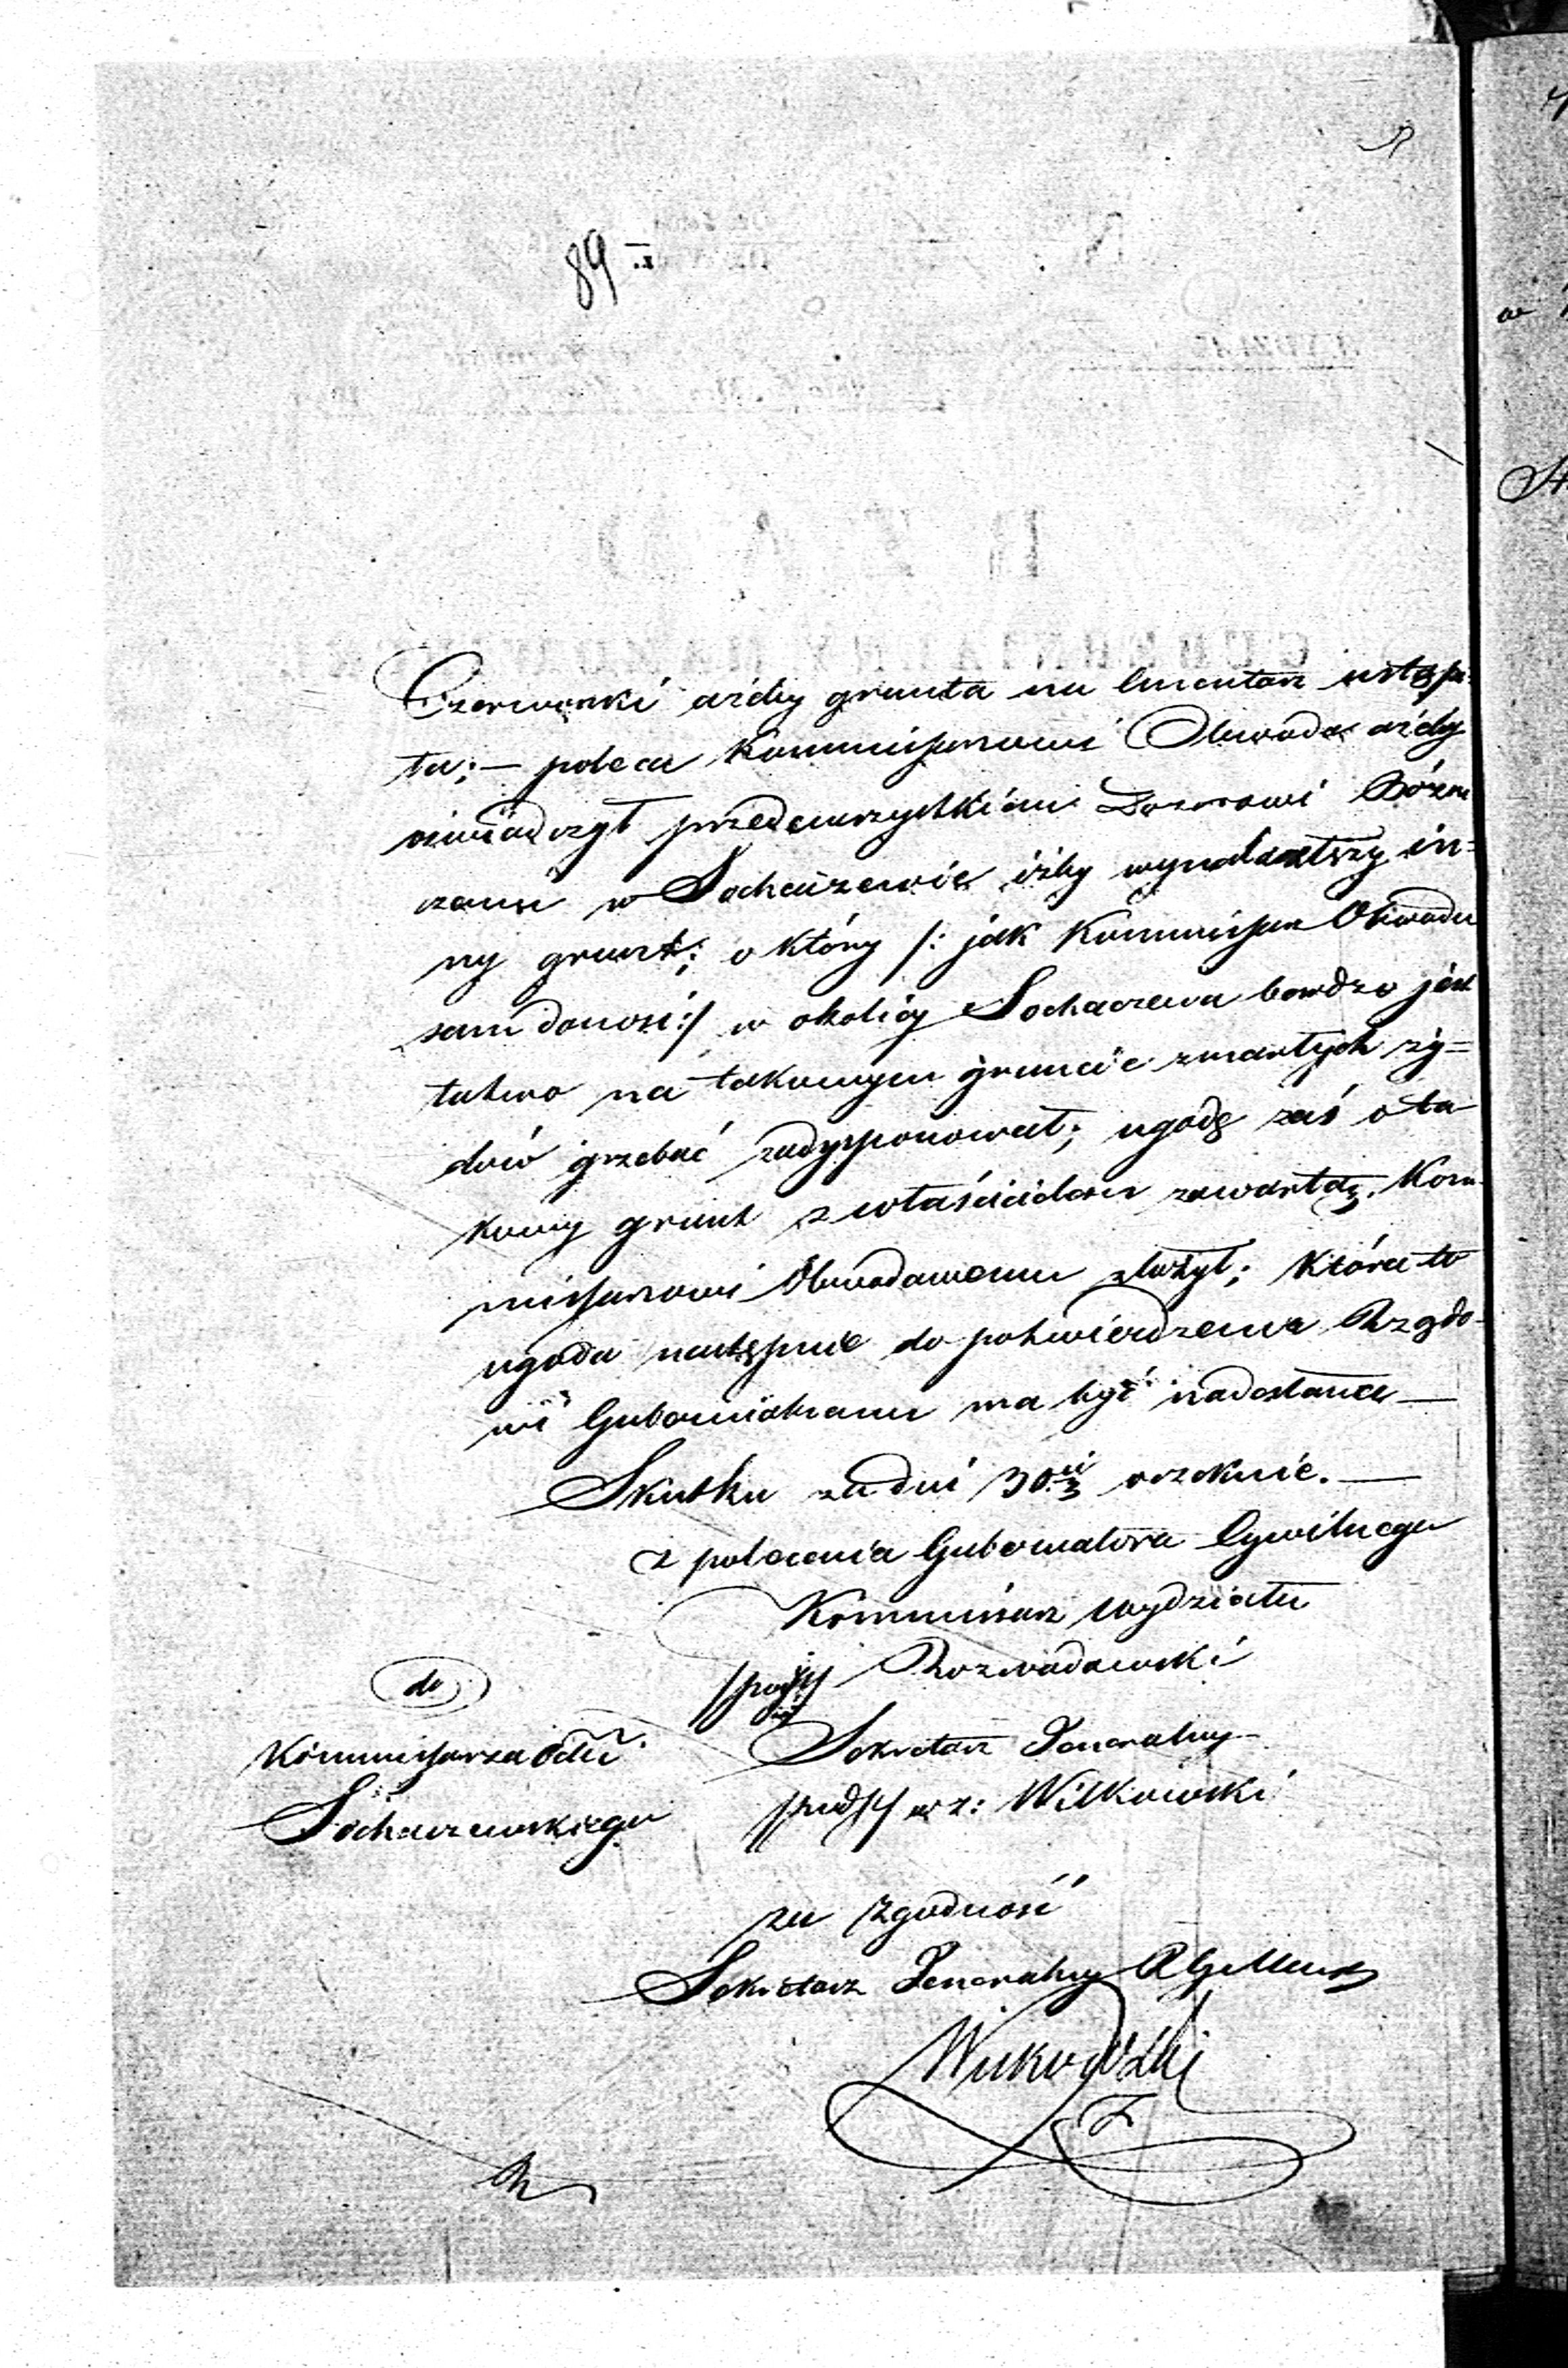 89
Czerwonki ażeby grunta na Cmentarz ustąpi-
ła; — poleca Kommissarzowi Obwodu ażeby
oświadczył przedewszystkiem Dozorowi Bóżni
czemu w Sochaczewie iżby wynalazłszy in=
ny grunt; o który /: jak Kommissarz Obwodu
sam donosi :/ w okolicy Sochaczewa bardzo jest
łatwo na takowym gruncie zmarłych ży=
dów grzebać zadysponował; ugodę zaś o ta
kowy grunt z właścicielem zawartą, Kom-
missarzowi Obwodowemu złożył; która to
ugoda następnie do potwierdzenia Rządo-
wi Gubernialnemu ma być nadesłana —
Skutku za dni 30 oczekuie. —
z polecenia Gubernatora Cywilnego
Kommissarz Wydziału
/podp/ Rozwadowski
do
Kommissarza Obdu
Sochaczewskiego
Sekretarz Jeneralny
/podp/ w z: Wilkowski
za zgodność
Sekretarz Jeneralny